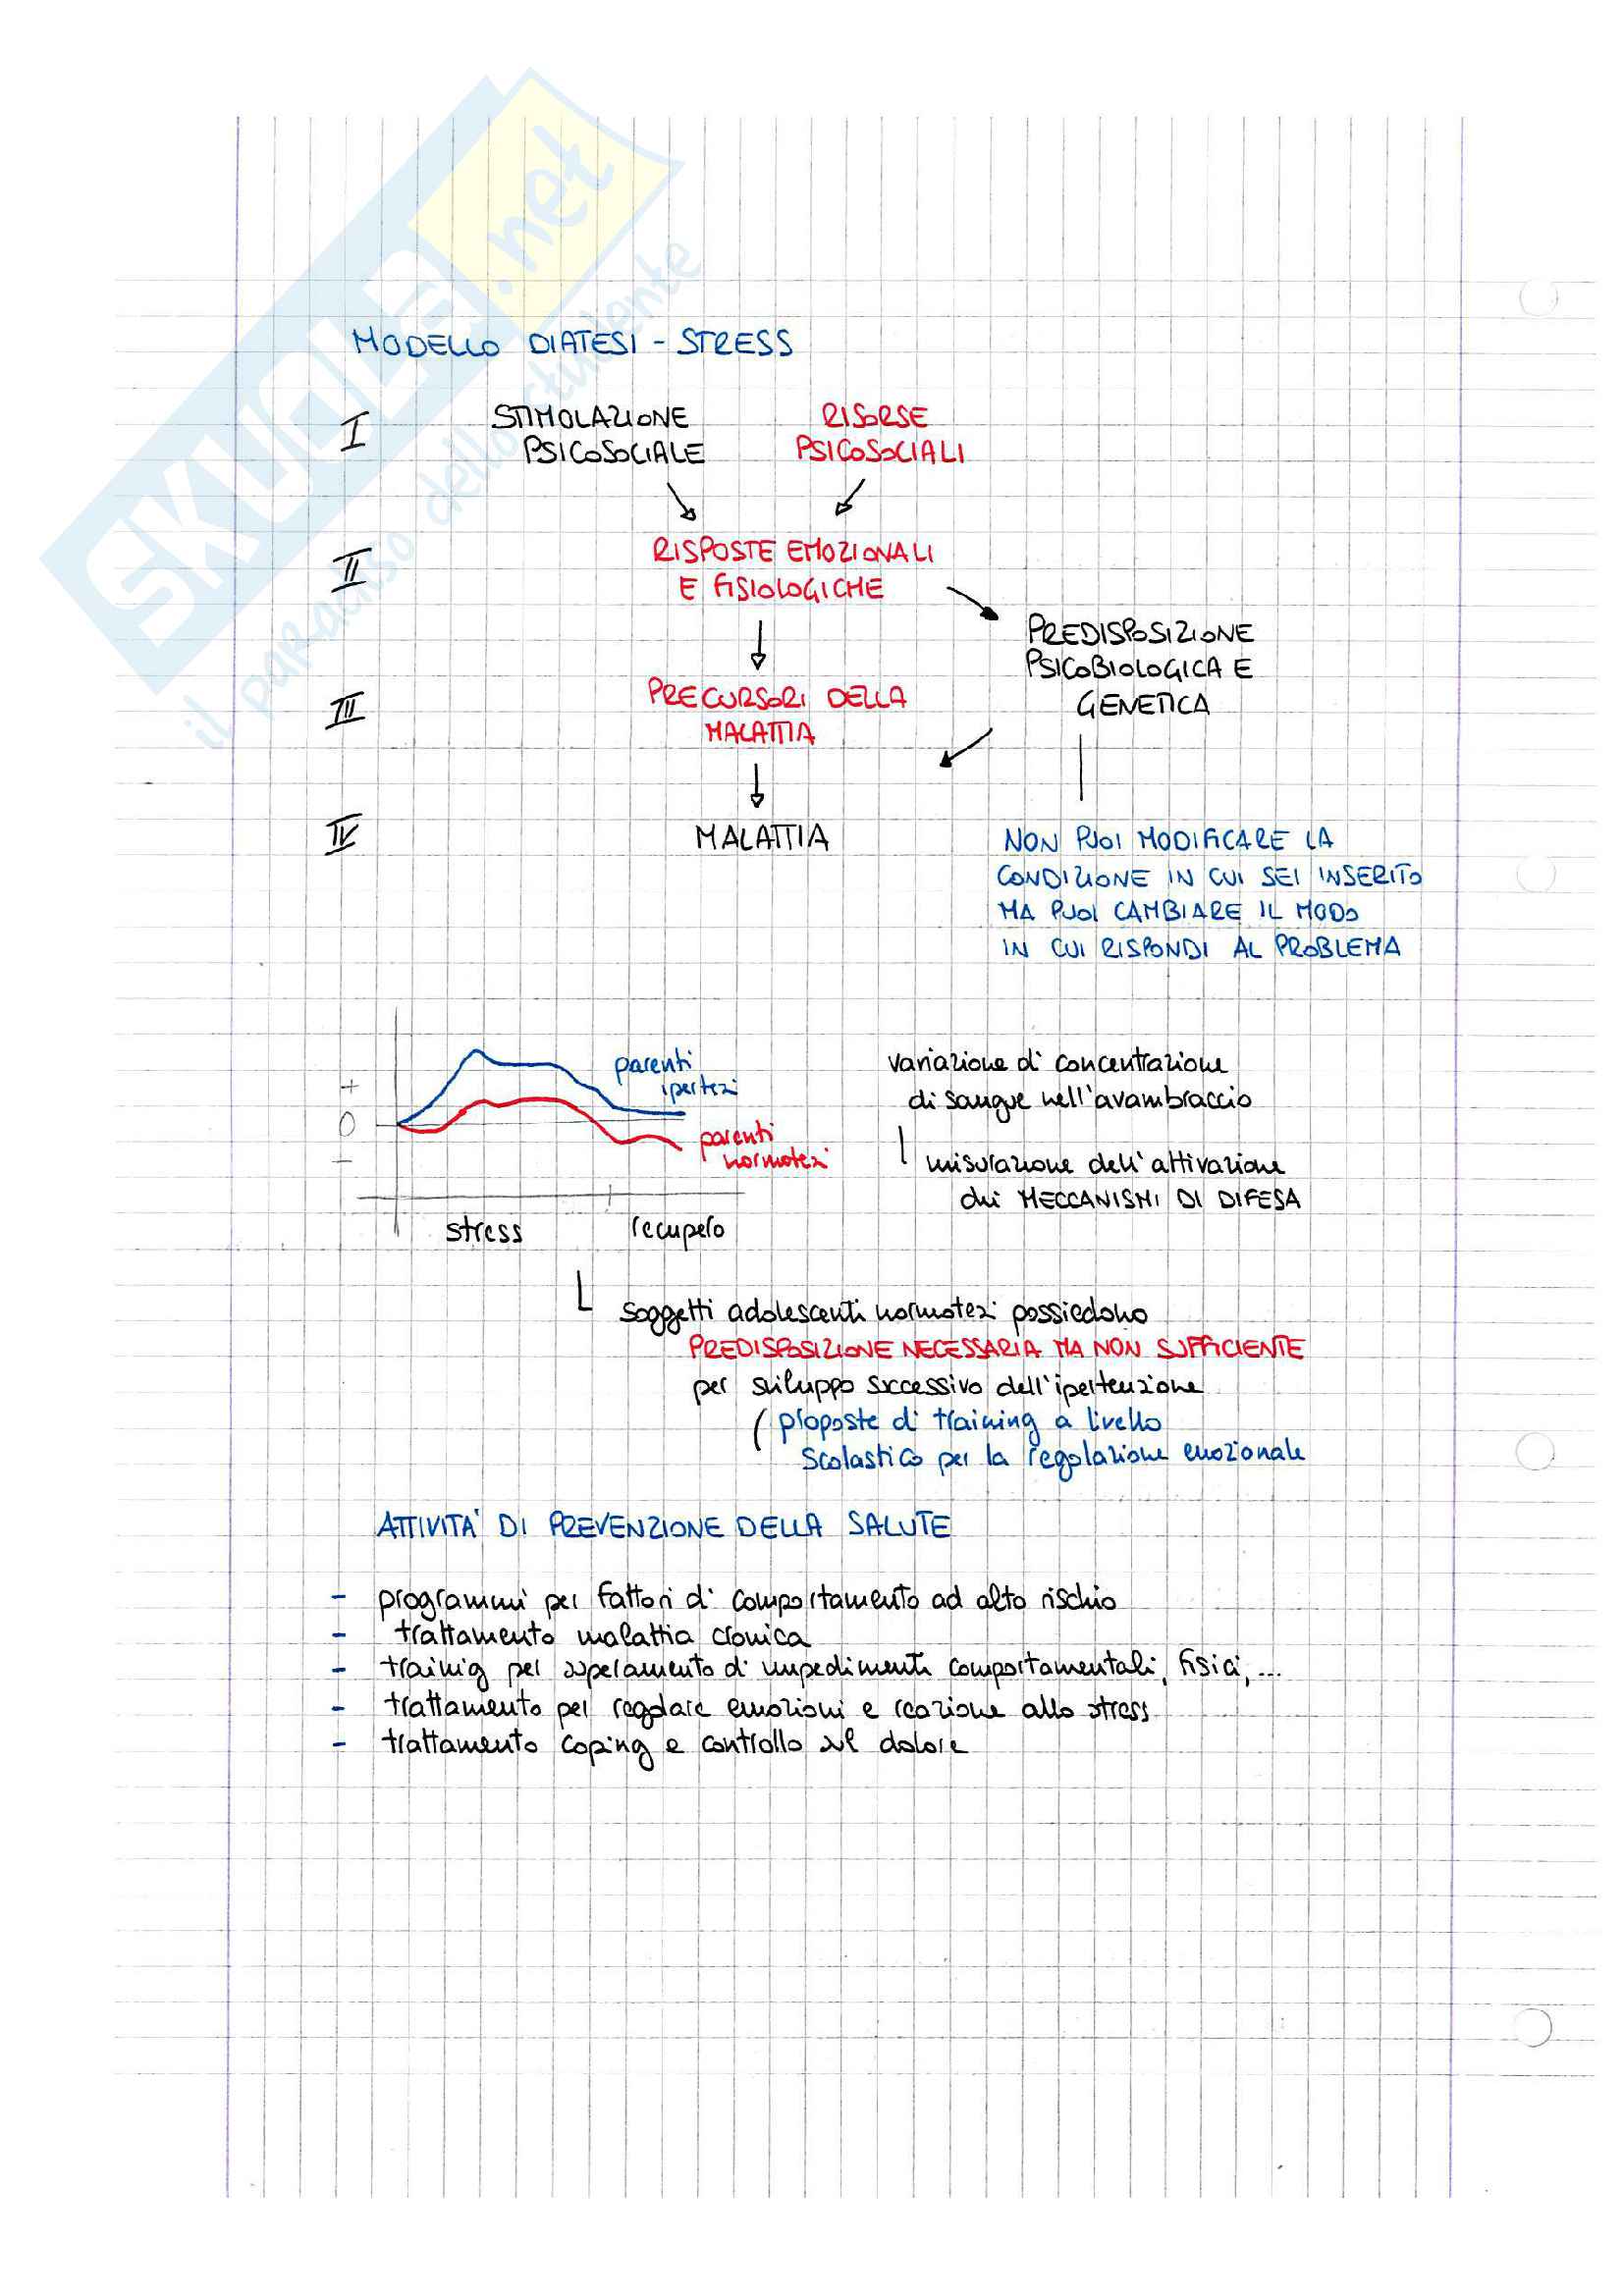 SKUOLA.net
il paradiso dello studente
MODELLO DIATESI - STRESS
I
STIMOLAZIONE
PSICOSOCIALE
RISORSE
PSICOSOCIALI
II
RISPOSTE EMOZIONALI
E FISIOLOGICHE
PREDISPOSIZIONE
PSICOBIOLOGICA E
GENETICA
III
PRECURSORI DELLA
MALATTIA
IV
MALATTIA
NON PUOI MODIFICARE LA
CONDIZIONE IN CUI SEI INSERITO
MA PUOI CAMBIARE IL MODO
IN CUI RISPONDI AL PROBLEMA
+
0
-
parenti
ipertesi
parenti
normotesi
stress
recupero
variazione di concentrazione
di sangue nell'avambraccio
misurazione dell'attivazione
dei MECCANISMI DI DIFESA
soggetti adolescenti normotesi possiedono
PREDISPOSIZIONE NECESSARIA MA NON SUFFICIENTE
per sviluppo successivo dell'ipertenzione
(proposte di training a livello
scolastico per la regolazione emozionale
ATTIVITA' DI PREVENZIONE DELLA SALUTE
- programmi per fattori di comportamento ad alto rischio
- trattamento malattia cronica
- trainig per superamento di impedimenti comportamentali, fisici, ...
- trattamento per regolare emozioni e reazione allo stress
- trattamento coping e controllo sul dolore